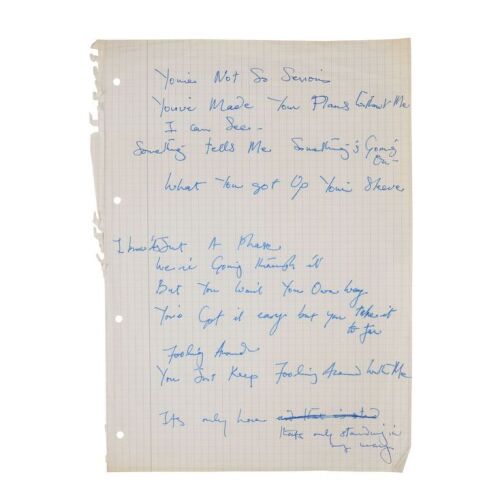 You're Not So Serious
You've Made Your Plans without Me
I can See -
Something tells Me Something's Going
On -
What You got Up Your Sleeve
Just A Phase
We're Going through it
But You Want You Own Way
You Got it easy but you take it
to far
Fooling Around
You Just Keep Fooling Around with Me
It's only love
that's only standing in
my way